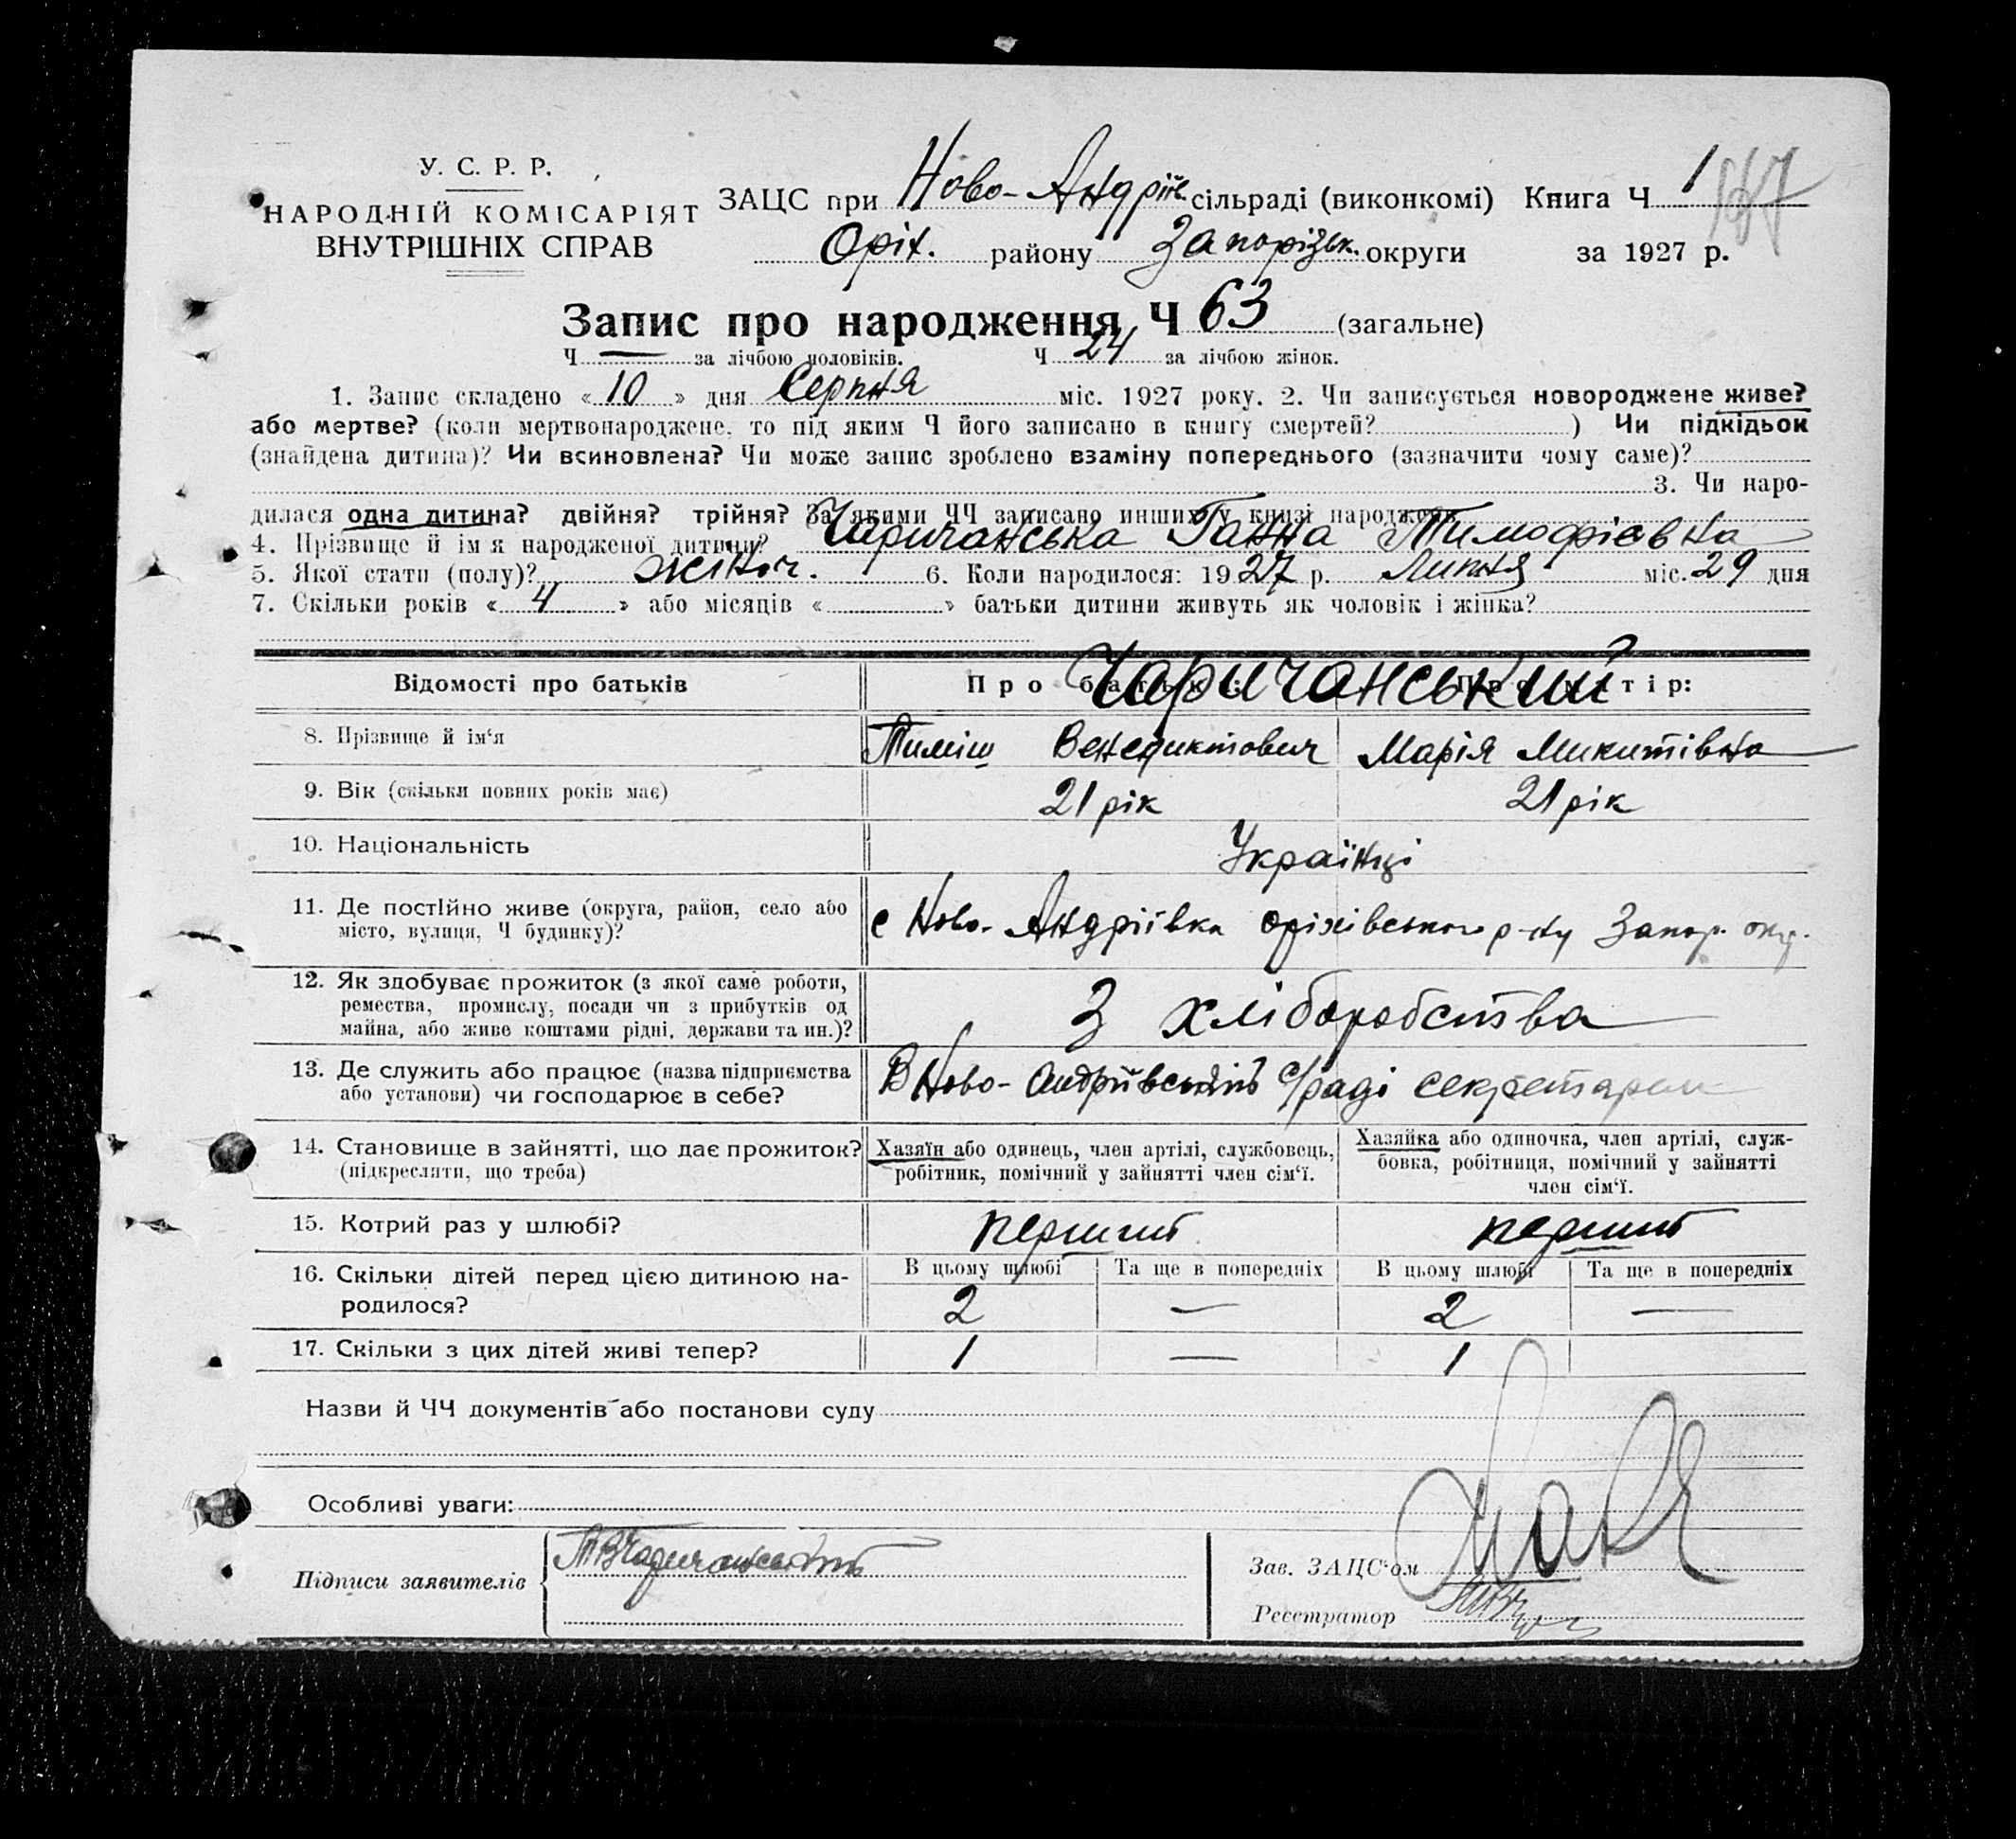 У. С. Р. Р.
НАРОДНІЙ КОМІСАРІЯТ
ВНУТРІШНІХ СПРАВ
ЗАЦС при Ново-Андріїв. сільраді (виконкомі) Книга Ч 1
147
Оріх. району Запорізьк. округи за 1927 р.
Запис про народження Ч 63 (загальне)
Ч — за лічбою чоловіків. Ч 24 за лічбою жінок.
1. Запис складено « 10 » дня Серпня міс. 1927 року. 2. Чи записується новороджене живе?
або мертве? (коли мертвонароджене, то під яким Ч його записано в книгу смертей? ) Чи підкідьок
(знайдена дитина)? Чи всиновлена? Чи може запис зроблено взаміну попереднього (зазначити чому саме)?
3. Чи наро-
дилася одна дитина? двійня? трійня? За якими ЧЧ записано инших у книзі народжень
4. Прізвище й ім'я народженої дитини? Чаричанська Ганна Тимофієвна
5. Якої стати (полу)? жіноч. 6. Коли народилося: 1927 р. Липня міс. 29 дня
7. Скільки років « 4 » або місяців « » батьки дитини живуть як чоловік і жінка?
Відомості про батьків Про батька: Про матір:
Чаричанський
8. Прізвище й ім'я Тиміш Венедиктович Марія Микитівна
9. Вік (скільки повних років має) 21 рік 21 рік
10. Національність Українці
11. Де постійно живе (округа, район, село або
місто, вулиця, Ч будинку)? с Ново-Андріївка оріхівського р-ну Запор. окр.
12. Як здобуває прожиток (з якої саме роботи,
ремества, промислу, посади чи з прибутків од
майна, або живе коштами рідні, держави та ин.)? З хліборобства
13. Де служить або працює (назва підприємства
або установи) чи господарює в себе? В Ново-Андріївській с/раді секретарем
14. Становище в зайнятті, що дає прожиток?
(підкреслити, що треба)
Хазяїн або одинець, член артілі, службовець,
робітник, помічний у зайнятті член сім'ї.
Хазяйка або одиночка, член артілі, служ-
бовка, робітниця, помічний у зайнятті
член сім'ї.
15. Котрий раз у шлюбі? перший перший
16. Скільки дітей перед цією дитиною на-
родилося?
В цьому шлюбі Та ще в попередніх В цьому шлюбі Та ще в попередніх
2 — 2 —
17. Скільки з цих дітей живі тепер? 1 — 1
Назви й ЧЧ документів або постанови суду
Особливі уваги:
Підписи заявителів ТВЧаричанський
Зав. ЗАЦС'ом
Реєстратор